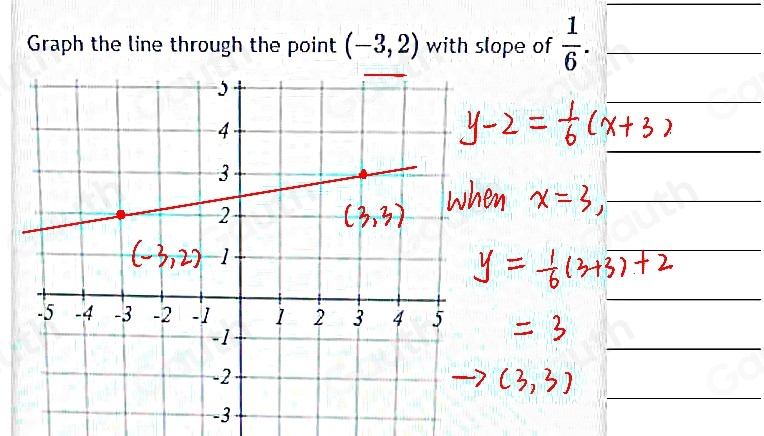 Graph the line through the point (−3, 2) with slope of 1/6.
5
4
3
2
1
-5 -4 -3 -2 -1 1 2 3 4 5
-1
-2
-3
(-3,2)
(3,3)
y-2 = 1/6 (x+3)
when x=3,
y = 1/6 (3+3)+2
= 3
→ (3,3)